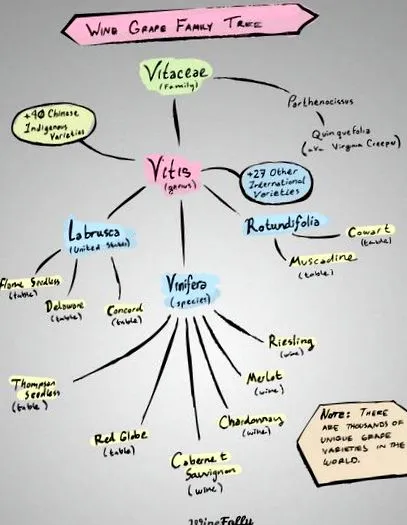 WINE GRAPE FAMILY TREE
Vitaceae
(family)
Parthenocissus
Quinquefolia
(aka Virginia Creeper)
+40 Chinese
Indigenous
Varieties
Vitis
(genus)
+27 Other
International
Varieties
Labrusca
(United States)
Rotundifolia
Cowart
(table)
Muscadine
(table)
Vinifera
(species)
Flame Seedless
(table)
Delaware
(table)
Concord
(table)
Riesling
(wine)
Merlot
(wine)
Thompson
Seedless
(table)
Chardonnay
(wine)
Red Globe
(table)
Cabernet
Sauvignon
(wine)
NOTE: THERE
ARE THOUSANDS OF
UNIQUE GRAPE
VARIETIES IN THE
WORLD.
WineFolly